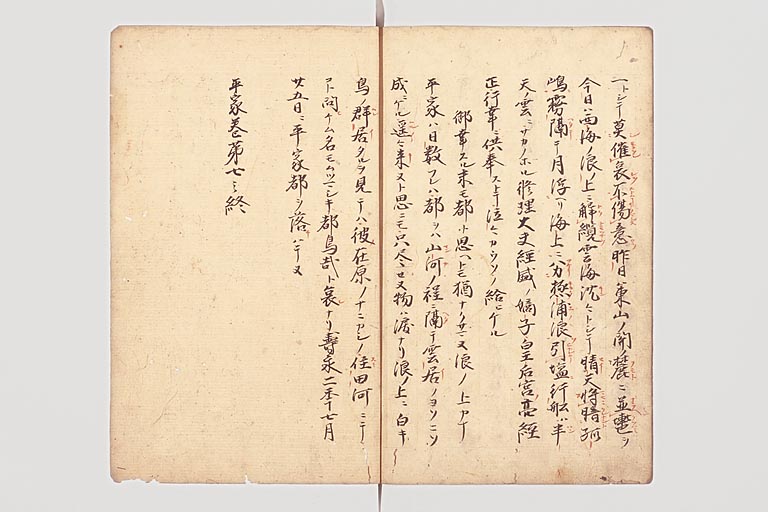 一トシテ莫催哀不傷意昨日東山ノ関ノ麓ニ並轡ヲ
今日ハ西海ノ浪ノ上ニ解纜雲海沈々トシテ晴天将暗孤
嶋霧隔テ月浮リ海上ニ分極浦浪引塩行船ハ半
天ノ雲ニサカノホル修理大夫経盛ノ嫡子皇后宮亮経
正行幸ニ供奉ストテ泣々カウソ給ヒケル
御幸スル末モ都ト思ヘトモ猶ナクサマヌ浪ノ上カナ
平家ハ日数フレハ都ヲハ山河ノ程ニ隔テ雲居ノヨソニソ
成ニケル遥々来ヌト思ニモ只尽セヌ物ハ涙ナリ浪ノ上ニ白キ
鳥ノ群居タルヲ見テハ彼在原ノナニカシノ住田河ニテ
コト問ケム名モムツマシキ都鳥哉ト哀ナリ寿永二年七月
廿五日ニ平家都ヲ落ハテヌ
平家巻第七之終